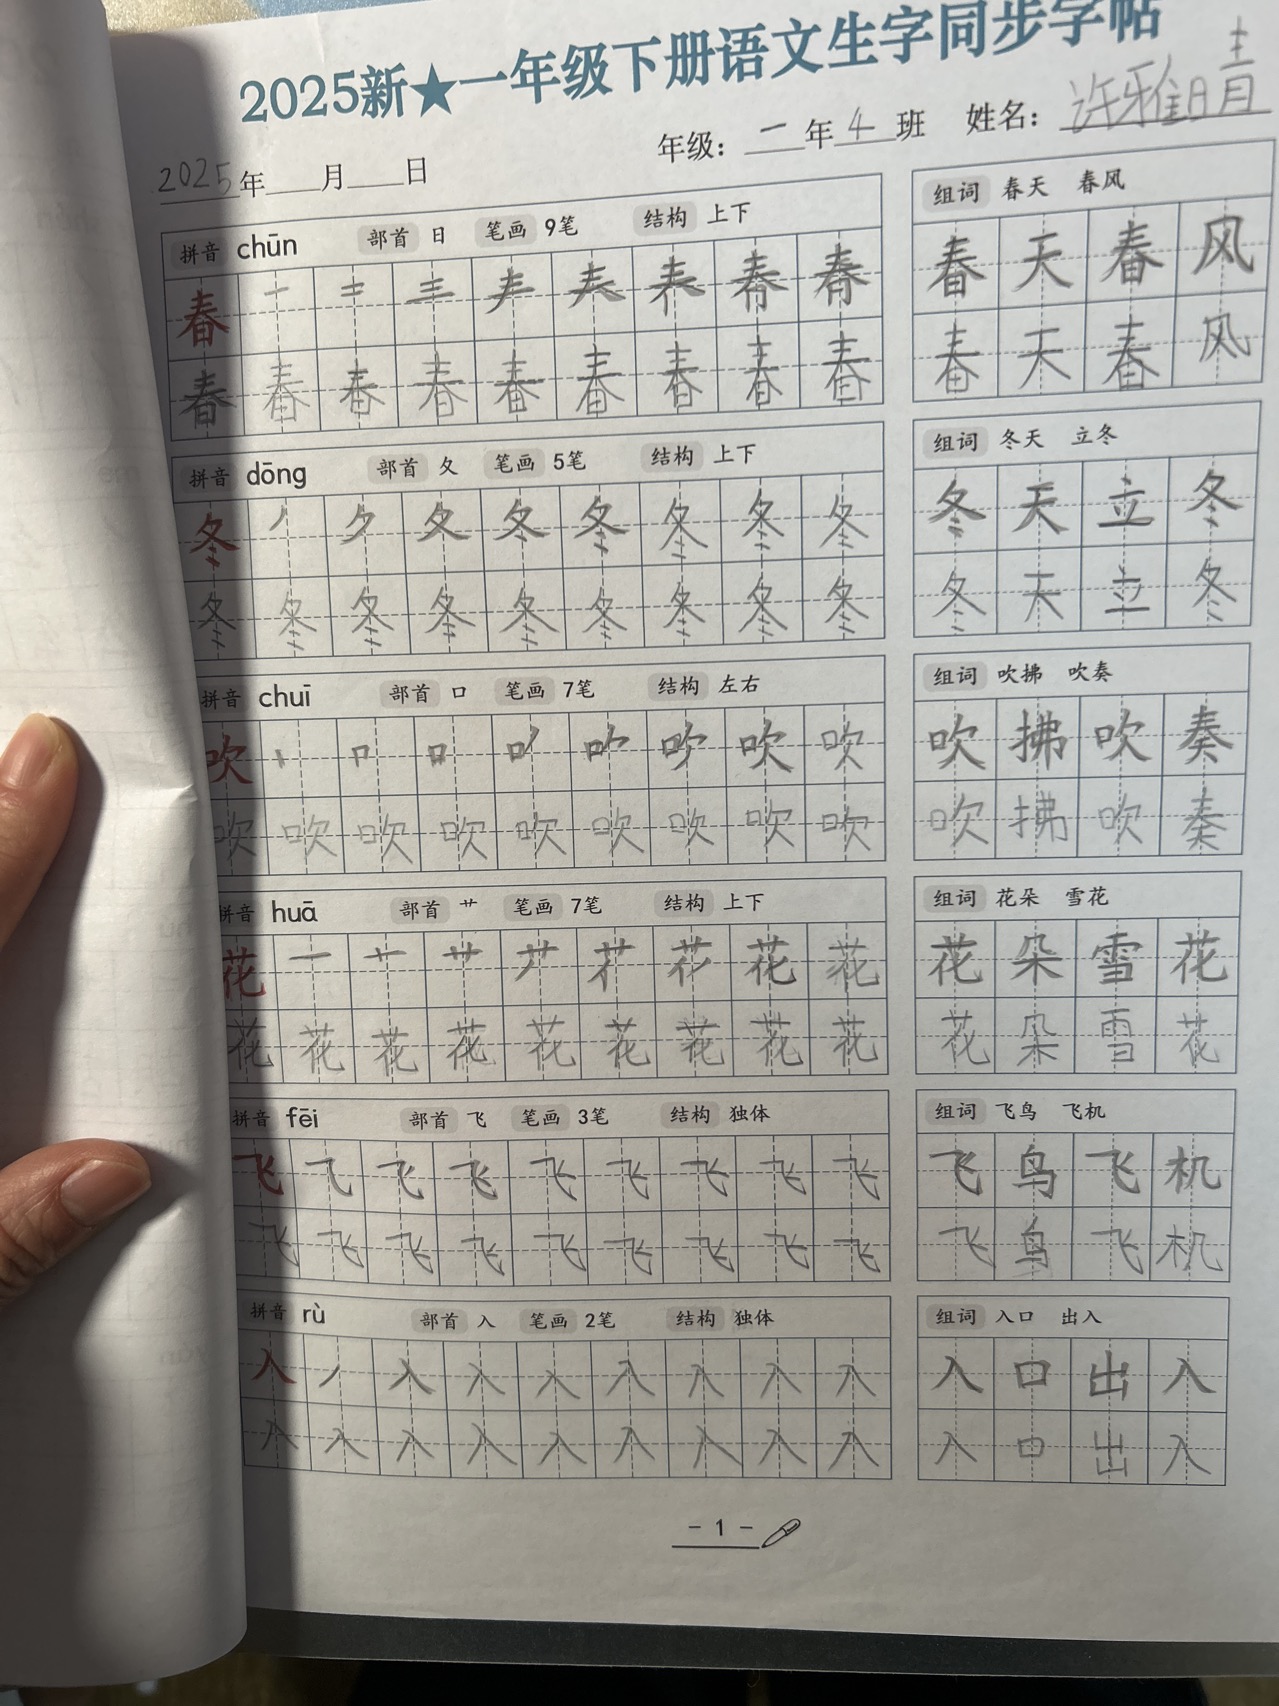 2025新★一年级下册语文生字同步字帖
2025年____月____日 年级：一年4班 姓名：许雅晴
拼音 chūn 部首 日 笔画 9笔 结构 上下
春 一 二 三 𡗗 春 春
春 春 春 春 春 春 春 春 春
组词 春天 春风
春 天 春 风
春 天 春 风
拼音 dōng 部首 夂 笔画 5笔 结构 上下
冬 丿 ク 夂 冬 冬 冬 冬 冬
冬 冬 冬 冬 冬 冬 冬 冬 冬
组词 冬天 立冬
冬 天 立 冬
冬 天 立 冬
拼音 chuī 部首 口 笔画 7笔 结构 左右
吹 丨 口 吹 吹
吹 吹 吹 吹 吹 吹 吹 吹 吹
组词 吹拂 吹奏
吹 拂 吹 奏
吹 拂 吹 奏
拼音 huā 部首 艹 笔画 7笔 结构 上下
花 一 十 艹 花 花
花 花 花 花 花 花 花 花 花
组词 花朵 雪花
花 朵 雪 花
花 朵 雪 花
拼音 fēi 部首 飞 笔画 3笔 结构 独体
飞 乁 飞 飞 飞 飞 飞 飞 飞
飞 飞 飞 飞 飞 飞 飞 飞 飞
组词 飞鸟 飞机
飞 鸟 飞 机
飞 鸟 飞 机
拼音 rù 部首 入 笔画 2笔 结构 独体
入 丿 入 入 入 入 入 入 入
入 入 入 入 入 入 入 入 入
组词 入口 出入
入 口 出 入
入 口 出 入
- 1 -